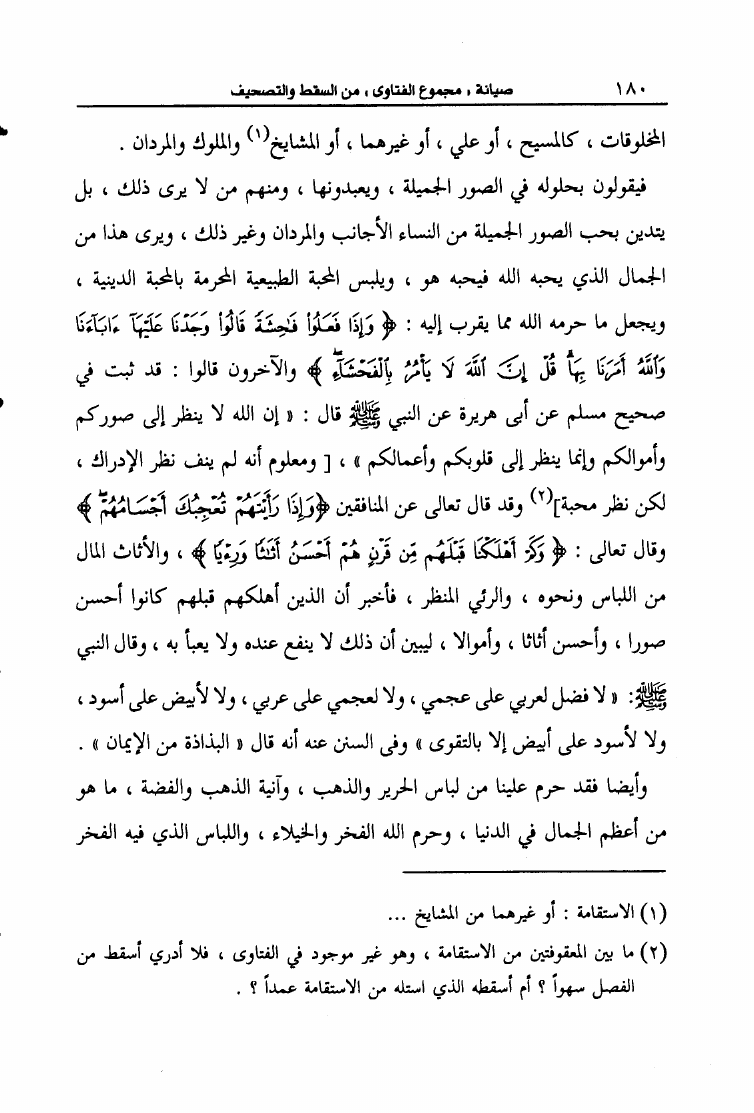 ١٨٠ صيانة ، مجموع الفتاوى ، من السقط والتصحيف
المخلوقات ، كالمسيح ، أو علي ، أو غيرهما ، أو المشايخ(١) والملوك والمردان .
فيقولون بحلوله في الصور الجميلة ، ويعبدونها ، ومنهم من لا يرى ذلك ، بل
يتدين بحب الصور الجميلة من النساء الأجانب والمردان وغير ذلك ، ويرى هذا من
الجمال الذي يحبه الله فيحبه هو ، ويلبس المحبة الطبيعية المحرمة بالمحبة الدينية ،
ويجعل ما حرمه الله مما يقرب إليه : ﴿ وَإِذَا فَعَلُوا۟ فَـٰحِشَةً قَالُوا۟ وَجَدْنَا عَلَيْهَآ ءَابَآءَنَا
وَٱللَّهُ أَمَرَنَا بِهَا ۗ قُلْ إِنَّ ٱللَّهَ لَا يَأْمُرُ بِٱلْفَحْشَآءِ ۖ ﴾ والآخرون قالوا : قد ثبت في
صحيح مسلم عن أبى هريرة عن النبي ﷺ قال : « إن الله لا ينظر إلى صوركم
وأموالكم وإنما ينظر إلى قلوبكم وأعمالكم » ، [ ومعلوم أنه لم ينف نظر الإدراك ،
لكن نظر محبة](٢) وقد قال تعالى عن المنافقين ﴿وَإِذَا رَأَيْتَهُمْ تُعْجِبُكَ أَجْسَامُهُمْ ۖ ﴾
وقال تعالى : ﴿ وَكَمْ أَهْلَكْنَا قَبْلَهُم مِّن قَرْنٍ هُمْ أَحْسَنُ أَثَـٰثًا وَرِءْيًا ﴾ ، والأثاث المال
من اللباس ونحوه ، والرئي المنظر ، فأخبر أن الذين أهلكهم قبلهم كانوا أحسن
صورا ، وأحسن أثاثا ، وأموالا ، ليبين أن ذلك لا ينفع عنده ولا يعبأ به ، وقال النبي
ﷺ: « لا فضل لعربي على عجمي ، ولا لعجمي على عربي ، ولا لأبيض على أسود ،
ولا لأسود على أبيض إلا بالتقوى » وفى السنن عنه أنه قال « البذاذة من الإيمان » .
وأيضا فقد حرم علينا من لباس الحرير والذهب ، وآنية الذهب والفضة ، ما هو
من أعظم الجمال في الدنيا ، وحرم الله الفخر والخيلاء ، واللباس الذي فيه الفخر
(١) الاستقامة : أو غيرهما من المشايخ ...
(٢) ما بين المعقوفتين من الاستقامة ، وهو غير موجود في الفتاوى ، فلا أدري أسقط من
الفصل سهواً ؟ أم أسقطه الذي استله من الاستقامة عمداً ؟ .